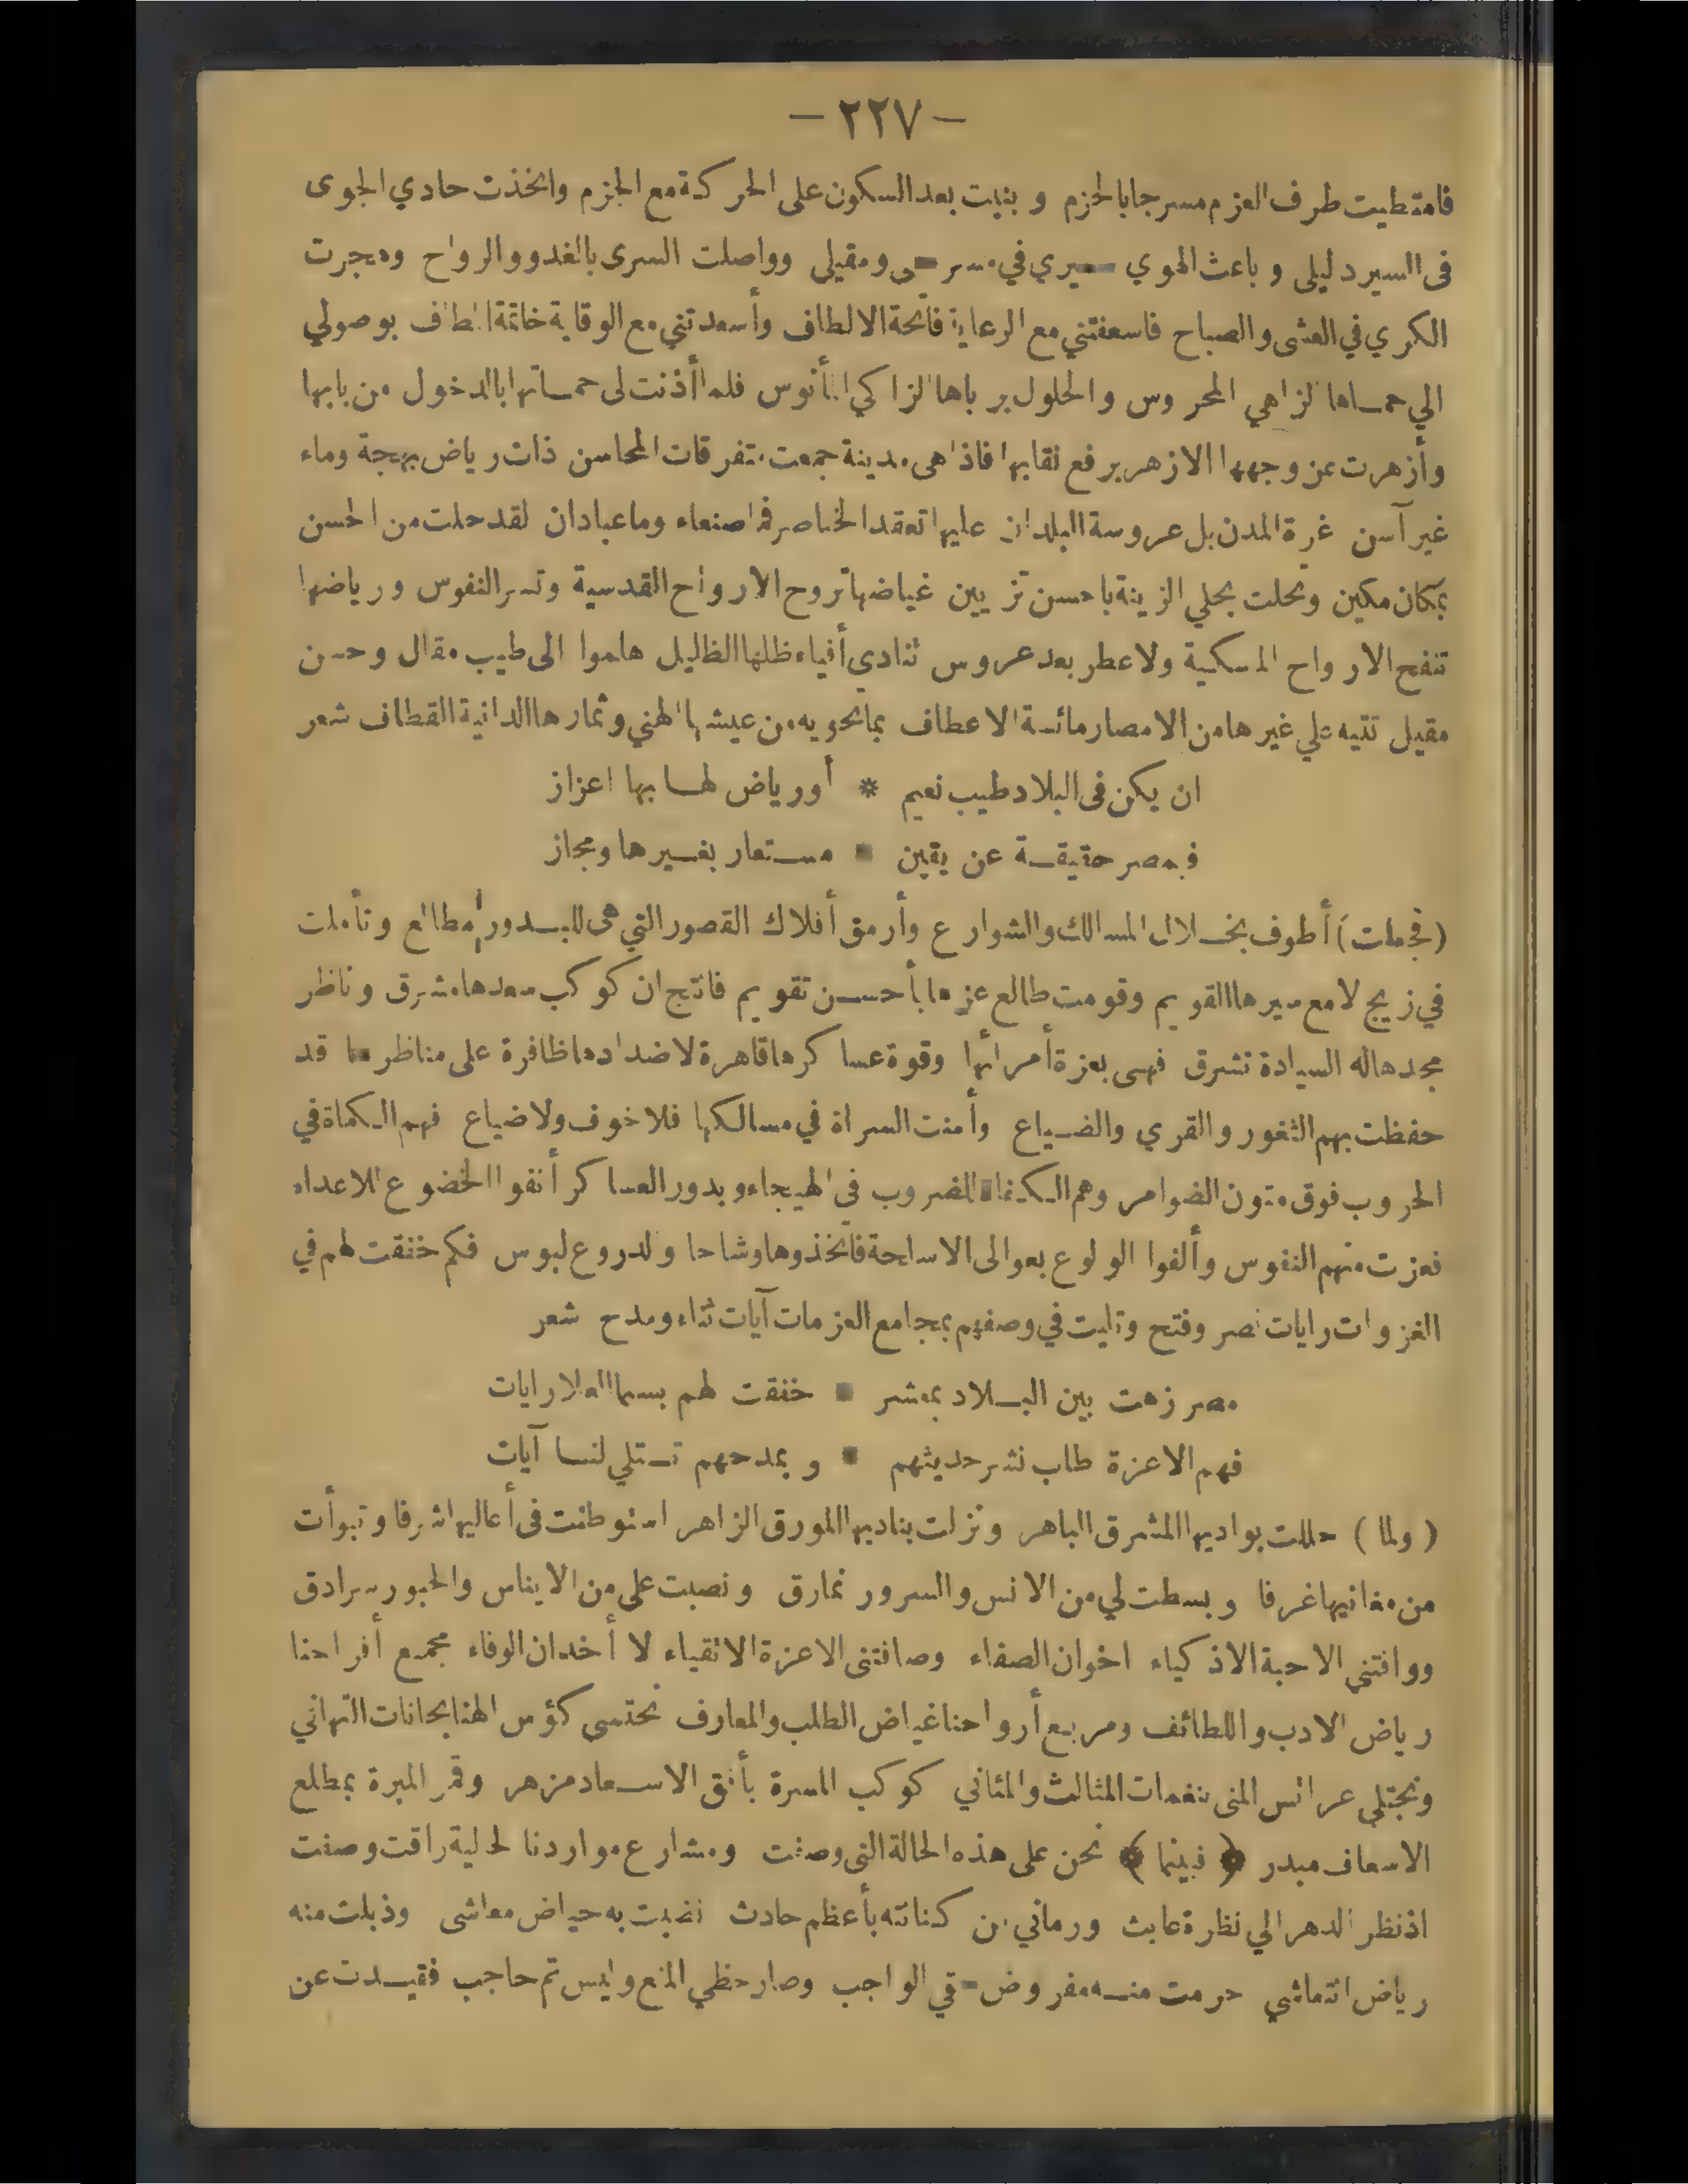 — ٢٢٧ —
فامتطيت طرف العزم مسرجا بالحزم وبنيت بعد السكون على الحركة مع الجزم واتخذت حادي الجوى
فى السير دليلى وباعث الهوي سيري في مسرحى ومقيلى وواصلت السرى بالغدو والرواح وهجرت
الكري في العشى والصباح فاسعفتني مع الرعاية فاتحة الالطاف وأسعدتني مع الوقاية خاتمة المطاف بوصولي
الي حماها الزاهي المحروس والحلول برباها الزاكي المأنوس فلما أذنت لى حماتها بالدخول من بابها
وأزهرت عن وجهها الازهر برفع نقابها فاذا هى مدينة جمعت متفرقات المحاسن ذات رياض بهجة وماء
غير آسن غرة المدن بل عروسة البلدان عليها تعقد الخناصر فما صنعاء وما عبادان لقد حلت من الحسن
بمكان مكين وتحلت بحلي الزينة باحسن تزيين غياضها تروح الارواح القدسية وتسر النفوس ورياضها
تنفح الارواح المسكية ولا عطر بعد عروس تنادى أفياء ظلها الظليل هلموا الى طيب مقال وحسن
مقيل تتيه علي غيرها من الامصار مائسة الاعطاف بما تحويه من عيشها الهني وثمارها الدانية القطاف شعر
ان يكن فى البلاد طيب نعيم * أو رياض لهــا بها اعزاز
فبمصر حقيقــة عن يقين * مستعار بغــيرها ومجاز
(فجعلت) أطوف بخــلال المسالك والشوارع وأرمق أفلاك القصور التي هى للبــدور مطالع وتأملت
في زيج لامع سيرها القويم وقومت طالع عزها بأحســن تقويم فانتج ان كوكب سعدها مشرق وناظر
مجدها له السيادة تشرق فهى بعزة أمرائها وقوة عساكرها قاهرة لاضدادها ظافرة على مناظرها قد
حفظت بهم الثغور والقري والضــياع وأمنت السراة في مسالكها فلا خوف ولا ضياع فهم الكماة في
الحروب فوق متون الضوامر وهم الكفاة للضروب فى الهيجاء وبدور العساكر أنفوا الخضوع للاعداء
فعزت منهم النفوس وألفوا الولوع بعوالى الاسلحة فاتخذوها وشاحا والدروع لبوس فكم خفقت لهم في
الغزوات رايات نصر وفتح وتليت في وصفهم بمجامع العزمات آيات ثناء ومدح شعر
مصر زهت بين البــلاد بمعشر * خفقت لهم بسما العلا رايات
فهم الاعزة طاب نشر حديثهم * وبمدحهم تــتلي لنــا آيات
(ولما) حللت بواديها المشرق الباهر ونزلت بناديها المورق الزاهر استوطنت فى أعاليها شرفا وتبوأت
من مغانيها غرفا وبسطت لي من الانس والسرور نمارق ونصبت على من الايناس والحبور سرادق
ووافتني الاحبة الاذكياء اخوان الصفاء وصافتنى الاعزة الاتقياء لا أخدان الوفاء مجمع أفراحنا
رياض الادب واللطائف ومربع أرواحنا غياض الطلب والمعارف نحتسى كؤس الهنا بحانات التهاني
ونجتلي عرائس المنى بنغمات المثالث والمثاني كوكب المسرة بأفق الاســعاد مزهر وقمر المبرة بمطلع
الاسعاف مبدر ﴿ فبينما ﴾ نحن على هذه الحالة التى وصفت ومشارع مواردنا لحالية راقت وصفت
اذ نظر الدهر الي نظرة عابث ورماني من كنانته بأعظم حادث نضبت به حياض معاشى وذبلت منه
رياض انتعاشي حرمت منــه مفروض حقي الواجب وصار حظي المنع وليس ثم حاجب فقيــدت عن